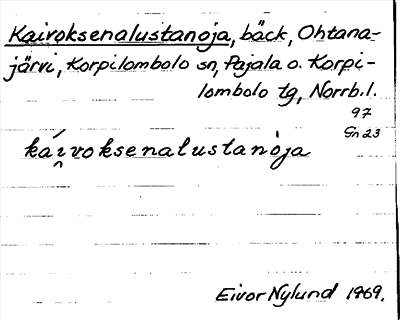 Kaivoksenalustanoja, bäck, Ohtana-
järvi, Korpilombolo sn, Pajala o. Korpi-
lombolo tg, Norrb. l.
97
Gn 23
kái̯voksenalustanòja
Eivor Nylund 1969.